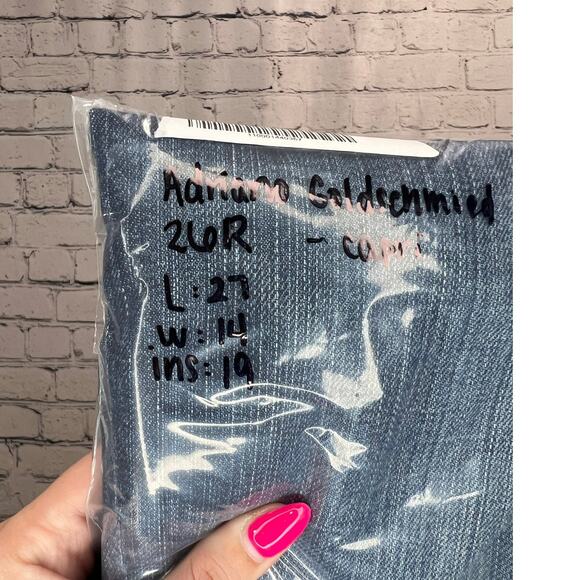 Adriano Goldschmied
26R - capri
L: 27
W: 14
ins: 19